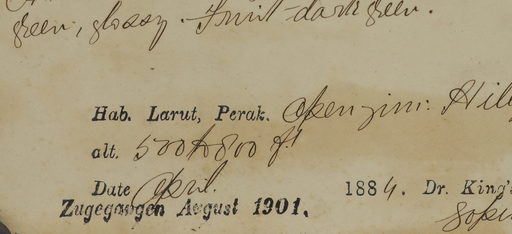 green, glossy. Fruit dark green.
Hab. Larut, Perak. Open jung. Hill
alt. 500 to 800 ft
Date April. 1884. Dr. King's
Zugegangen August 1901.